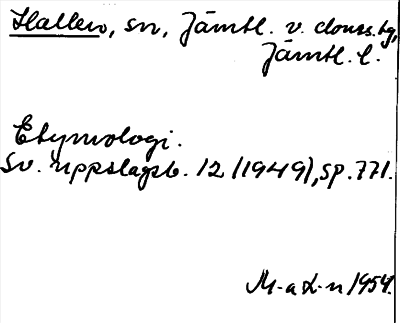 Hallen, sn, Jämtl. v. domss.tg,
Jämtl. l.
Etymologi.
Sv. uppslagsb. 12 (1949), sp. 771.
M-a L-n 1954.